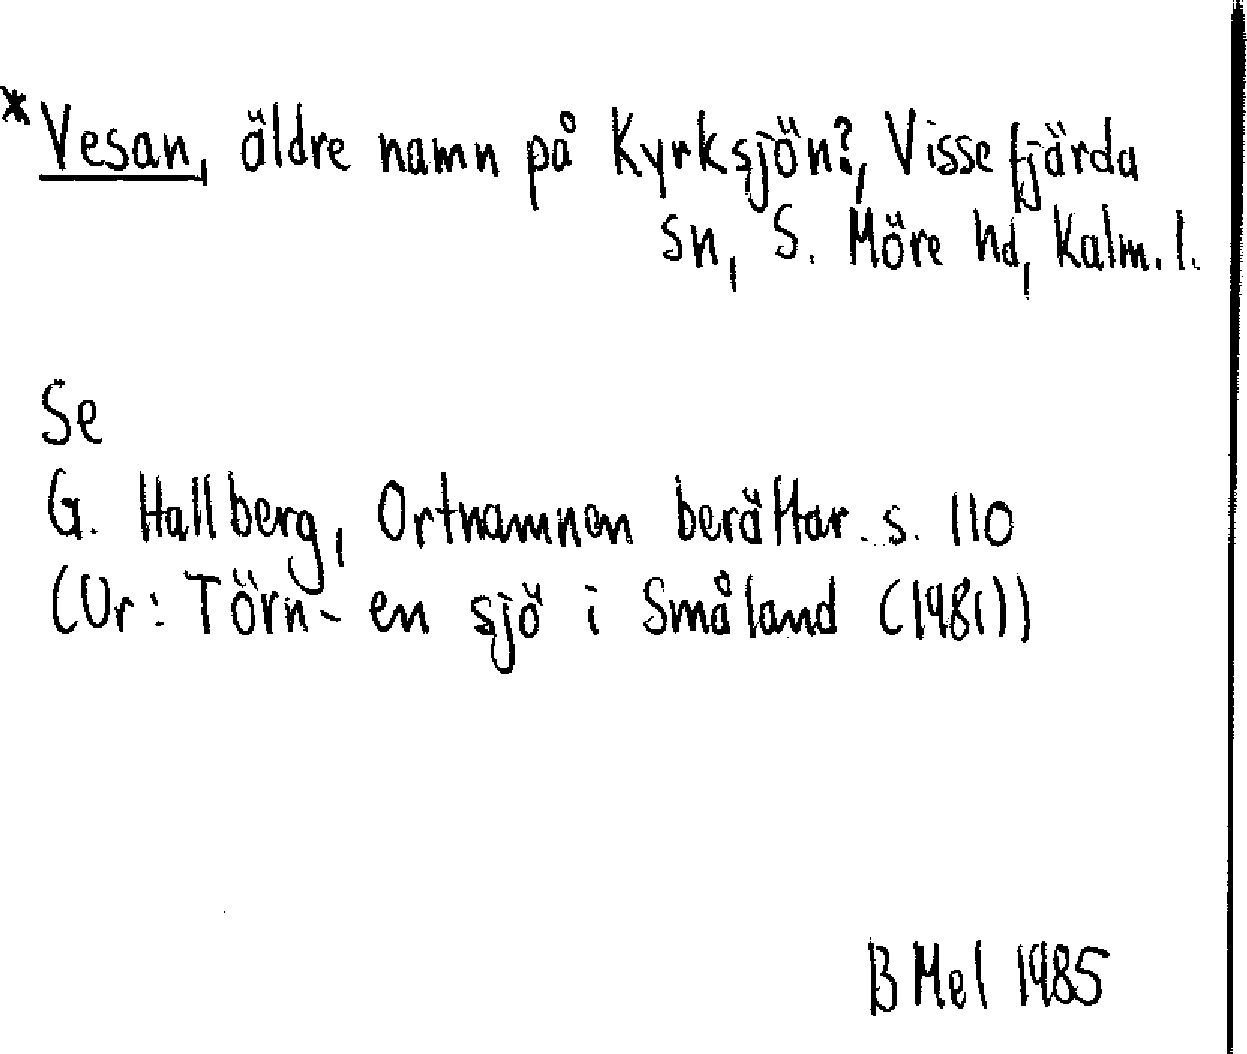 *Vesan, äldre namn på Kyrksjön?, Vissefjärda
sn, S. Möre hd, Kalm. l.
Se
G. Hallberg, Ortnamnen berättar. s. 110
(Ur: Törn - en sjö i Småland (1981))
B Mel 1985